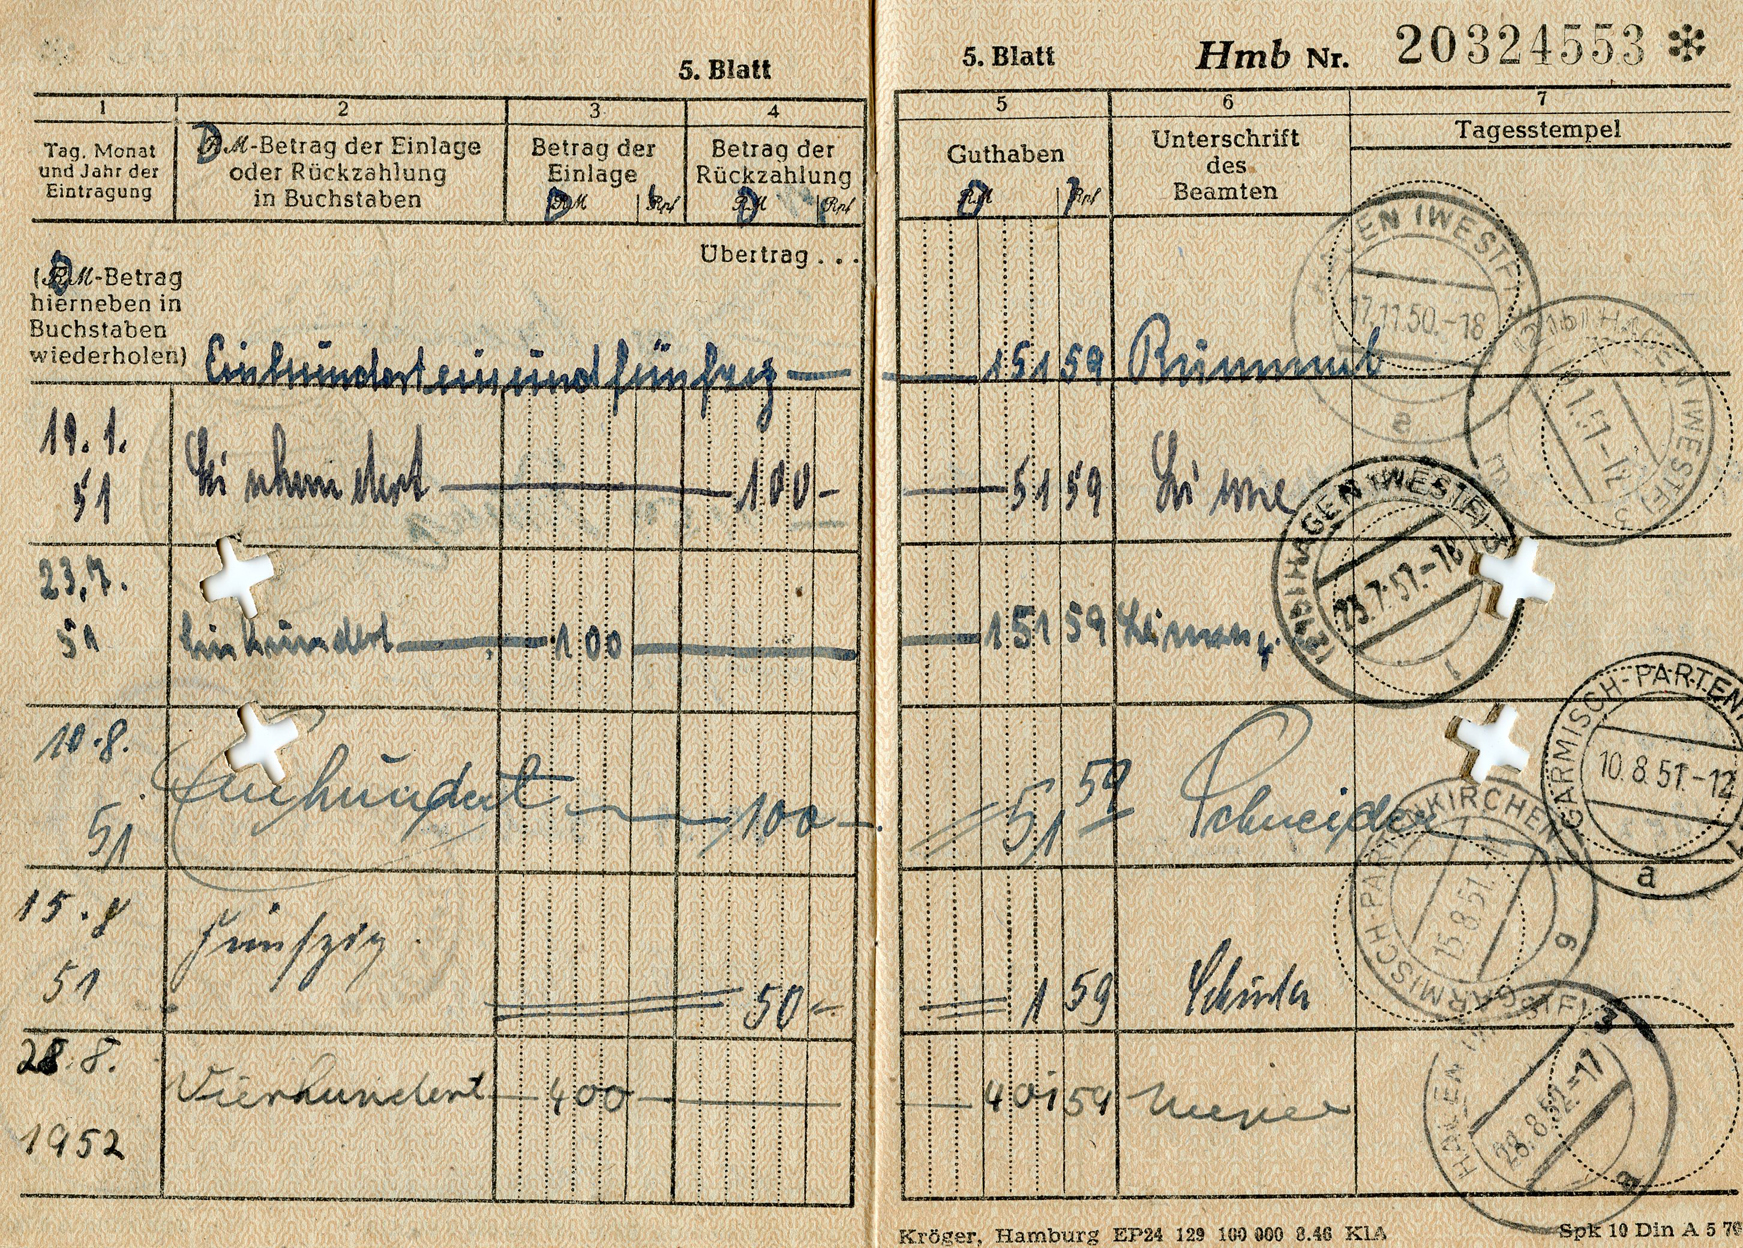 5. Blatt
5. Blatt Hmb Nr. 20324553 *
1 2 3 4 5 6 7
Tag, Monat
und Jahr der
Eintragung
DM-Betrag der Einlage
oder Rückzahlung
in Buchstaben
Betrag der
Einlage
RM Rpf
Betrag der
Rückzahlung
RM Rpf
Guthaben
RM Rpf
Unterschrift
des
Beamten
Tagesstempel
Übertrag . . .
(RM-Betrag
hierneben in
Buchstaben
wiederholen)
Einhunderteinundfünfzig — — 151 59 Rummel
HAGEN (WESTF)
17.11.50.-18
a
19.1.
51
Einhundert — 100 - — 51 59
(21b) HAGEN (WESTF) 3
19.1.51-12
m
23.7.
51
Einhundert — 100 — — 151 59
(21b) HAGEN (WESTF) 3
23.7.51.-18
10.8.
51
Einhundert — 100 - 51 59 Schneider
GARMISCH-PARTENK
10.8.51.-12
a
15.8
51
Fünfzig 50 - 1 59
GARMISCH-PARTENKIRCHEN 2
15.8.51.-
g
28.8.
1952
Vierhundert — 400 — — 401 59
HAGEN (WESTF) 3
28.8.52.-17
Kröger, Hamburg EP24 129 100 000 8.46 KlA
Spk 10 Din A 5